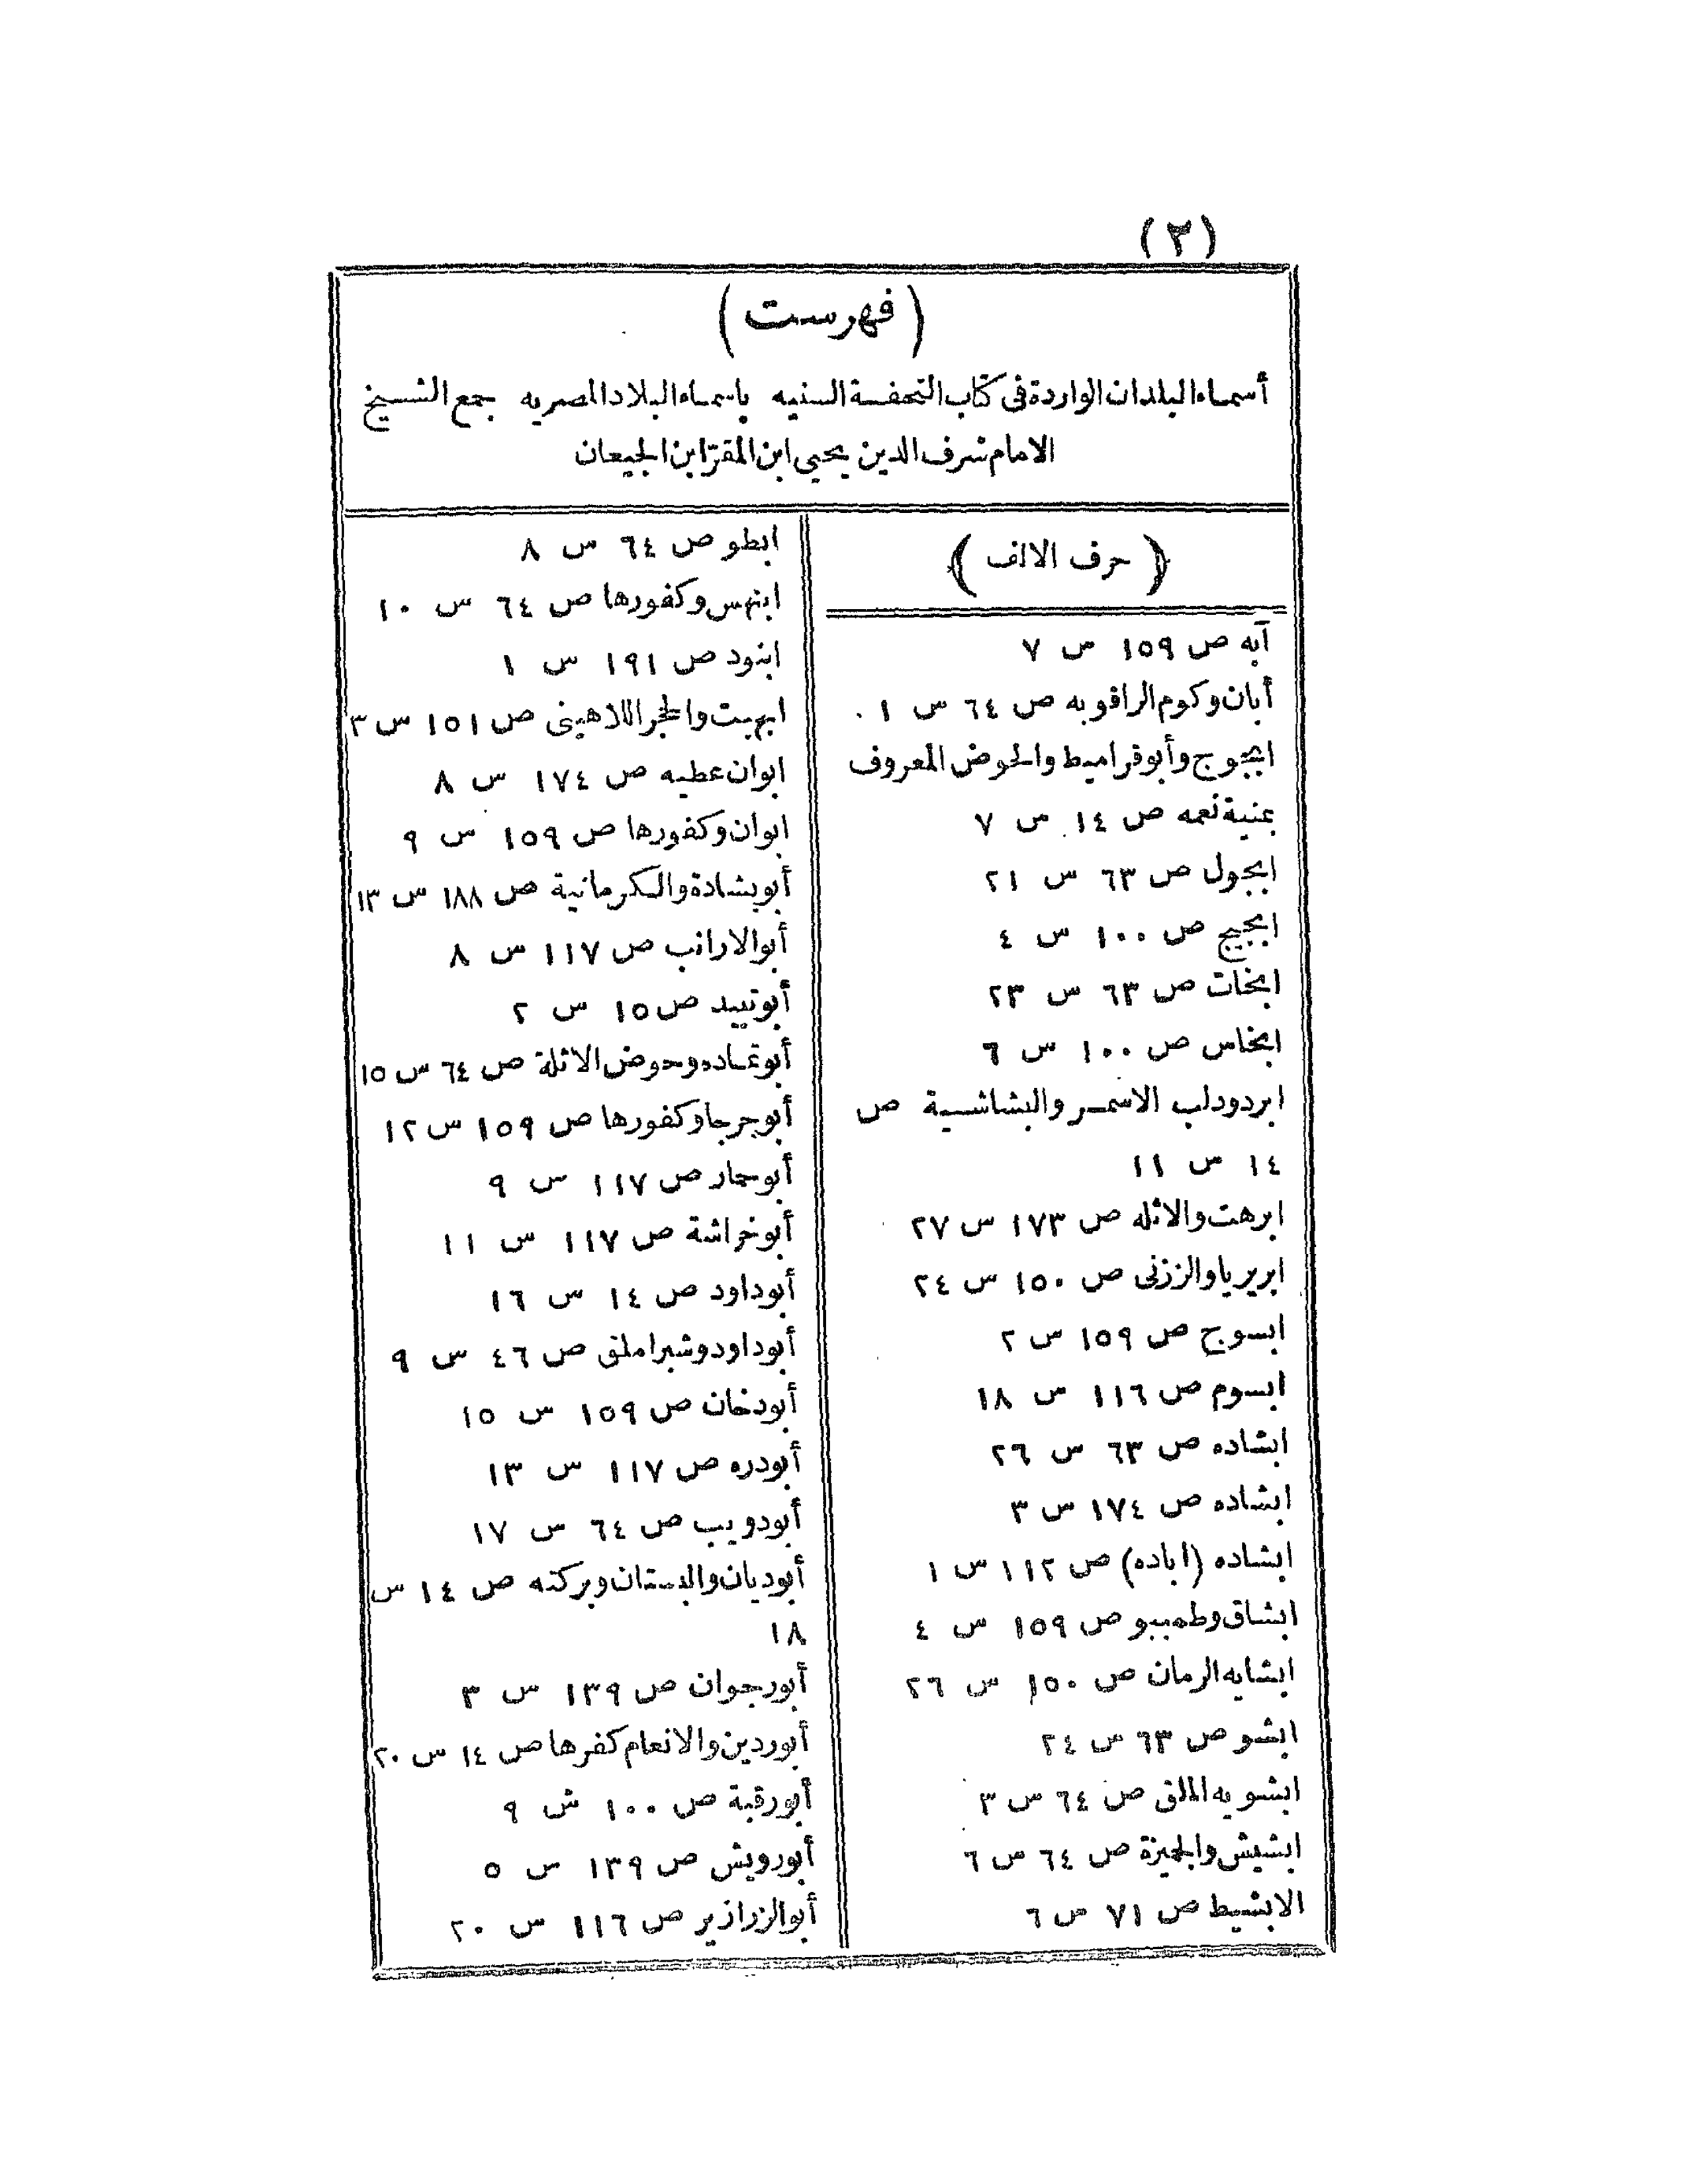 (٣)
(فهرست)
أسماء البلدان الواردة فى كتاب التحفة السنيه باسماء البلاد المصريه جمع الشيخ
الامام شرف الدين يحيى ابن المقرّ ابن الجيعان
(حرف الالف)
آبه ص ١٥٩ س ٧
أبان وكوم الراقوبه ص ٦٤ س ١
ابجوج وأبو قراميط والحوض المعروف
بمنية نعمه ص ١٤ س ٧
ابجول ص ٦٣ س ٢١
ابجيج ص ١٠٠ س ٤
ابخات ص ٦٣ س ٢٣
ابخاس ص ١٠٠ س ٦
ابردودلب الاسمر والبشاشية ص
١٤ س ١١
ابرهت والاثله ص ١٧٣ س ٢٧
ابريريا والززنى ص ١٥٠ س ٢٤
ابسوج ص ١٥٩ س ٢
ابسوم ص ١١٦ س ١٨
ابشاده ص ٦٣ س ٢٦
ابشاده ص ١٧٤ س ٣
ابشاده (اباده) ص ١١٢ س ١
ابشاق وطمببو ص ١٥٩ س ٤
ابشايه الرمان ص ١٥٠ س ٢٦
ابشو ص ٦٣ س ٢٤
ابشويه الملق ص ٦٤ س ٣
ابشيش والجميزة ص ٦٤ س ٦
الابشيط ص ٧١ س ٦
ابطو ص ٦٤ س ٨
ابنهس وكفورها ص ٦٤ س ١٠
ابنود ص ١٩١ س ١
ابهيت والحجر اللاهينى ص ١٥١ س ٣
ابوان عطيه ص ١٧٤ س ٨
ابوان وكفورها ص ١٥٩ س ٩
أبو بشادة والكرمانية ص ١٨٨ س ١٣
أبو الارانب ص ١١٧ س ٨
أبو تبيد ص ١٥ س ٢
أبو تماده وحوض الاثلة ص ٦٤ س ١٥
أبو جرجا وكفورها ص ١٥٩ س ١٢
أبو حمار ص ١١٧ س ٩
أبو خراشة ص ١١٧ س ١١
أبو داود ص ١٤ س ١٦
أبو داود وشبرا ملق ص ٤٦ س ٩
أبو دخان ص ١٥٩ س ١٥
أبو دره ص ١١٧ س ١٣
أبو دويب ص ٦٤ س ١٧
أبو ديان والبستان وبركته ص ١٤ س
١٨
أبو رجوان ص ١٣٩ س ٣
أبو ردين والانعام كفرها ص ١٤ س ٢٠
أبو رقبة ص ١٠٠ ش ٩
أبو رويش ص ١٣٩ س ٥
أبو الزرازير ص ١١٦ س ٢٠